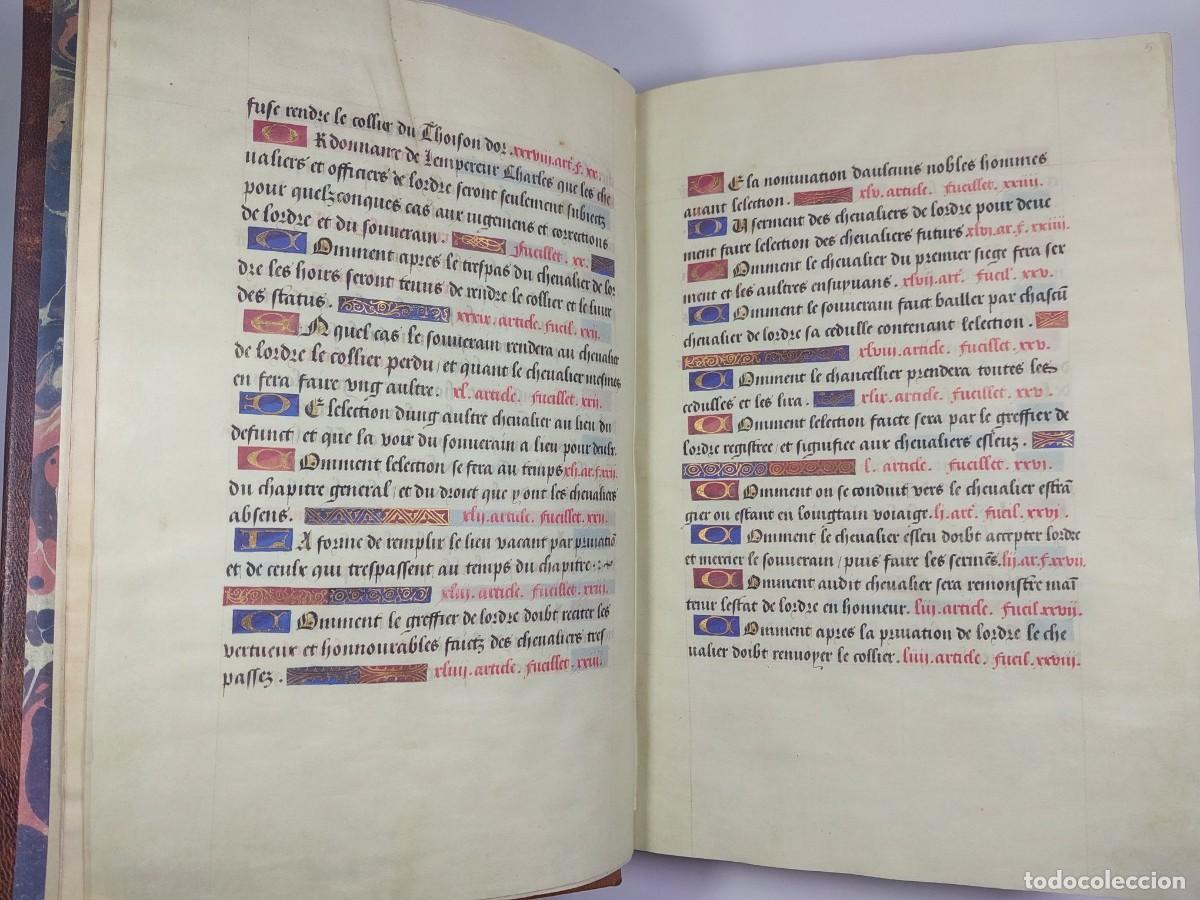 fuse rendre le collier du Thoison dor. xxxviij. art. f. xx.
Ordonnance de lempereur Charles que les che
ualiers et officiers de lordre seront seulement subiectz
pour quelzconques cas aux iugemens et corrections
de lordre et du souuerain. fueillet. xx.
Comment apres le trespas du cheualier de lor
dre les hoirs seront tenus de rendre le collier et le liure
des status. xxxix. article. fueil. xxj.
En quel cas le souuerain rendera au cheualier
de lordre le collier perdu / et quant le cheualier mesmes
en fera faire vng aultre. xl. article. fueillet. xxij.
De lelection dung aultre cheualier au lieu du
defunct / et que la voix du souuerain a lieu pour deulx.
Comment lelection se fera au temps xlj. ar. f. xxij.
du chapitre general / et du droict que y ont les cheualiers
absens. xlij. article. fueillet. xxij.
La forme de remplir le lieu vacant par priuatiõ
et de ceulx qui trespassent au temps du chapitre
xliij. article. fueillet. xxiij.
Comment le greffier de lordre doibt reciter les
vertueux et honnourables faictz des cheualiers tres
passez. xliiij. article. fueillet. xxiij.
5
De la nomination daulcuns nobles hommes
auant lelection. xlv. article. fueillet. xxiiij.
Du serment des cheualiers de lordre pour deue
ment faire lelection des cheualiers futurs xlvj. ar. f. xxiiij.
Comment le cheualier du premier siege fera ser
ment et les aultres ensuyuans. xlvij. art. fueil. xxv.
Comment le souuerain faict bailler par chascũ
cheualier de lordre sa cedulle contenant lelection.
xlviij. article. fueillet. xxv.
Comment le chancellier prendera toutes les
cedulles et les lira. xlix. article. fueillet. xxv.
Comment lelection faicte sera par le greffier de
lordre registree / et signifiee aux cheualiers esleuz.
l. article. fueillet. xxvj.
Comment on se conduit vers le cheualier estrã
gier ou estant en loingtain voiaige. lj. art. fueil. xxvj.
Comment le cheualier esleu doibt accepter lordre
et mercier le souuerain / puis faire les sermẽs. lij. ar. f. xxvij.
Comment audit cheualier sera remonstre maĩ
tenir lestat de lordre en honneur. liij. article. fueil. xxvij.
Comment apres la priuation de lordre le che
ualier doibt renuoyer le collier. liiij. article. fueil. xxviij.
todocoleccion